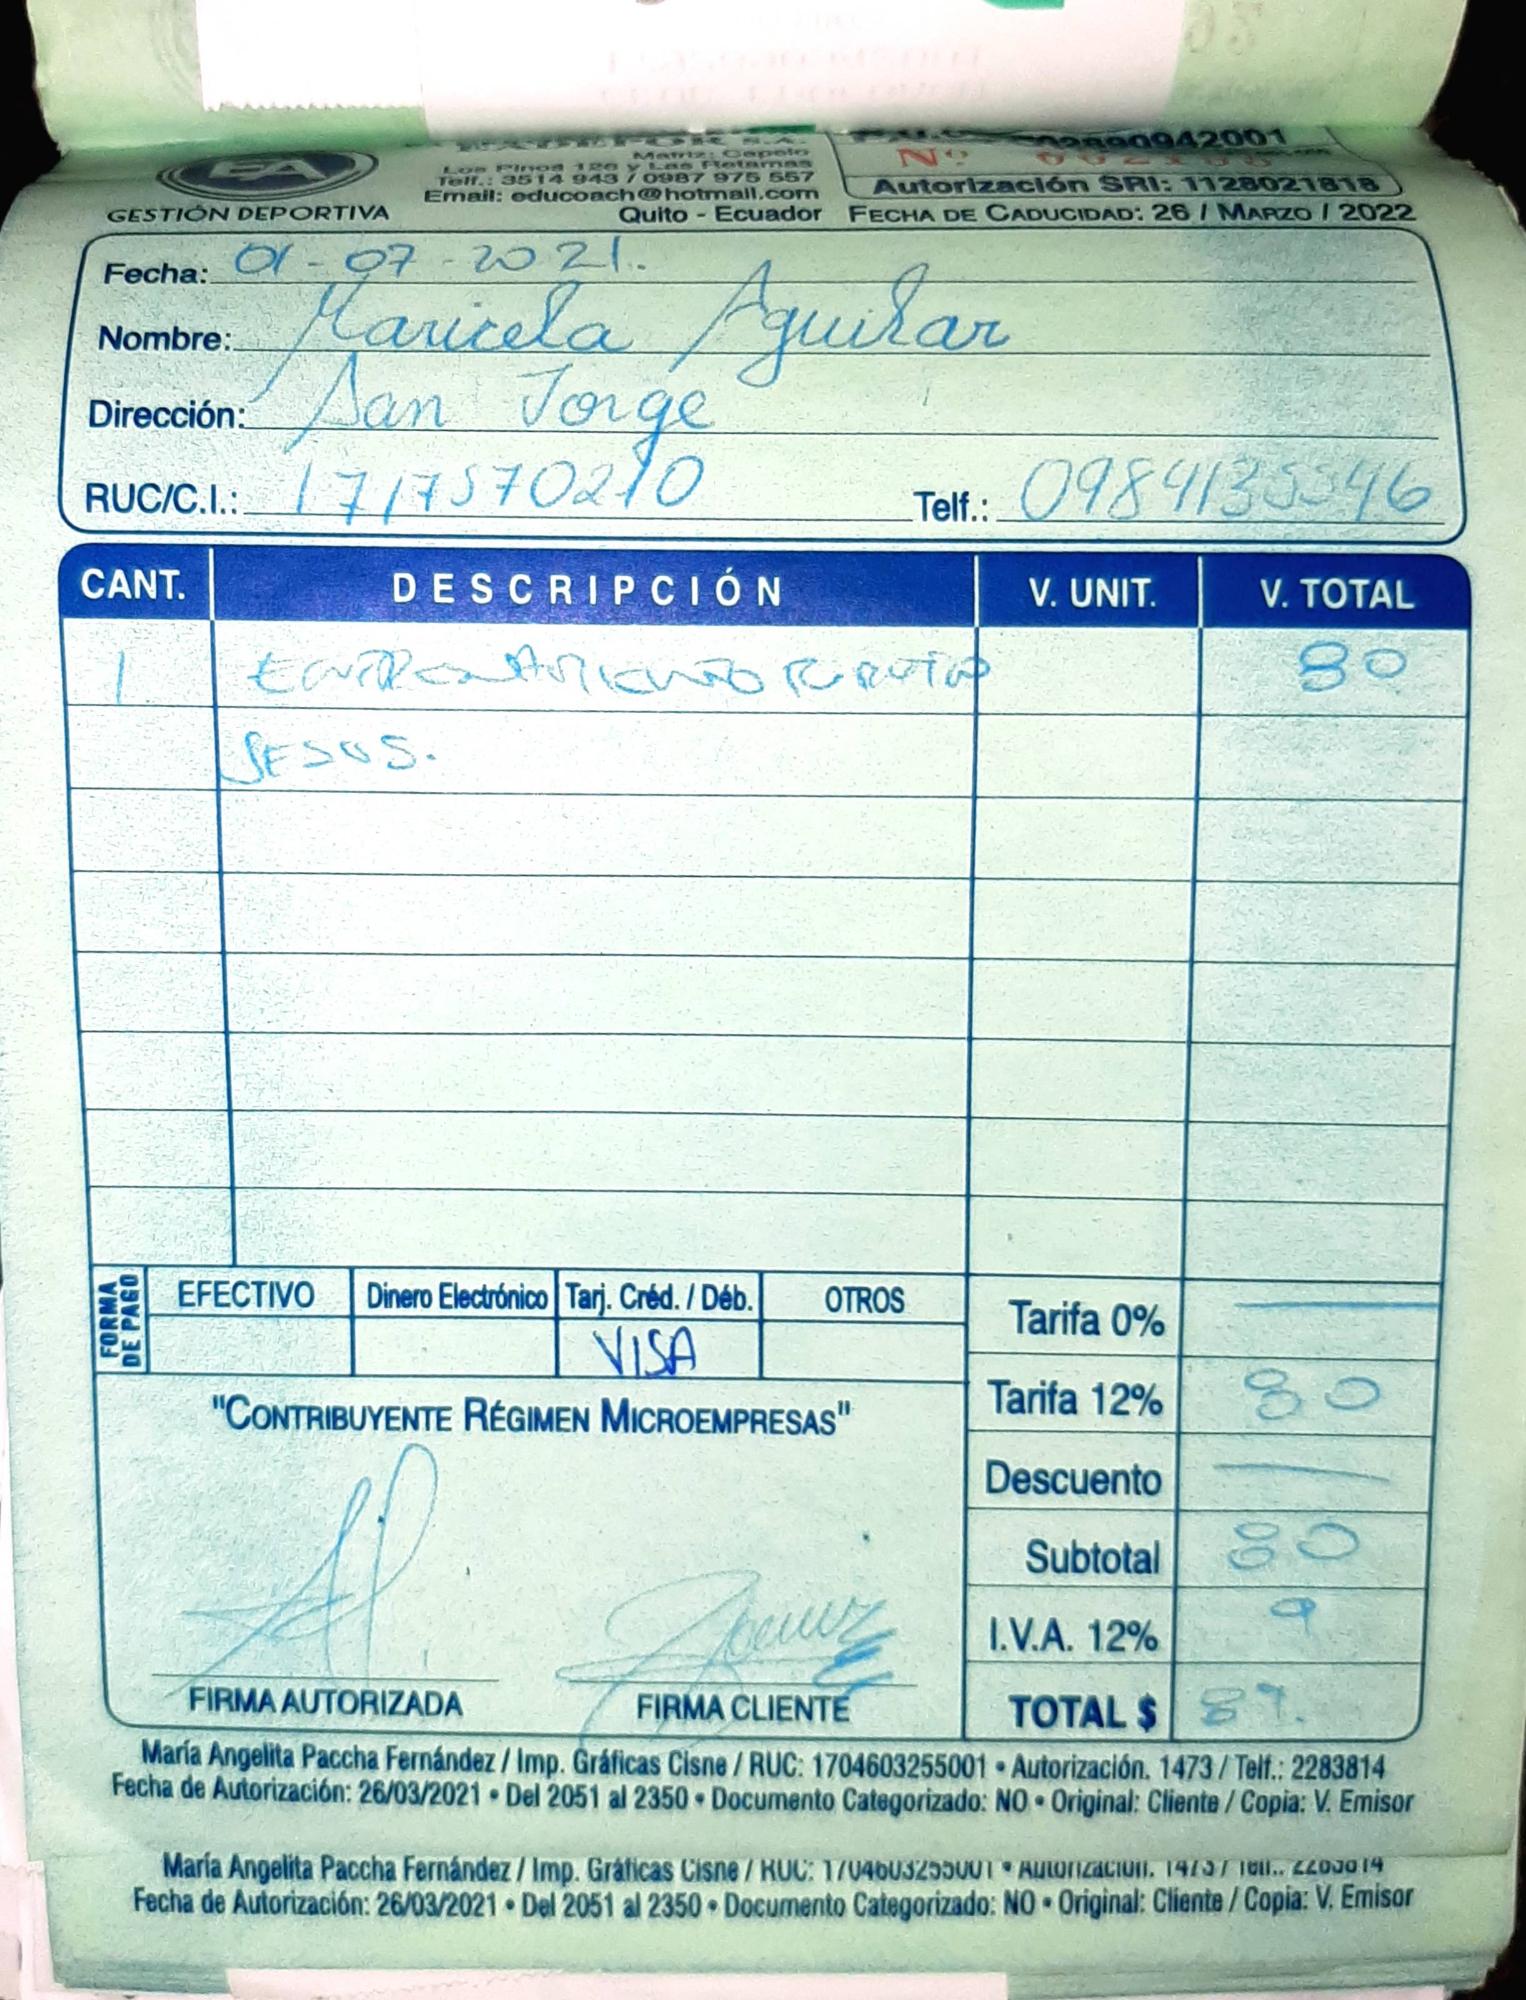 EA
GESTIÓN DEPORTIVA
S.A.
Matriz: Capelo
Los Pinos 126 y Las Retamas
Telf.: 3514 943 / 0987 975 557
Email: educoach@hotmail.com
Quito - Ecuador
Nº
Autorización SRI: 1128021818
FECHA DE CADUCIDAD: 26 / MARZO / 2022
Fecha: 01-07-2021.
Nombre: Maricela Aguilar
Dirección: San Jorge
RUC/C.I.: 1717570210 Telf.:
CANT. DESCRIPCIÓN V. UNIT. V. TOTAL
1 ENTRENAMIENTO 80
JESUS.
FORMA DE PAGO
EFECTIVO Dinero Electrónico Tarj. Créd. / Déb. OTROS
VISA
Tarifa 0%
Tarifa 12% 80
Descuento
Subtotal 80
I.V.A. 12% 9
TOTAL $ 89.
"CONTRIBUYENTE RÉGIMEN MICROEMPRESAS"
FIRMA AUTORIZADA FIRMA CLIENTE
María Angelita Paccha Fernández / Imp. Gráficas Cisne / RUC: 1704603255001 • Autorización. 1473 / Telf.: 2283814
Fecha de Autorización: 26/03/2021 • Del 2051 al 2350 • Documento Categorizado: NO • Original: Cliente / Copia: V. Emisor
María Angelita Paccha Fernández / Imp. Gráficas Cisne / RUC: 1704603255001 • Autorización. 1473 / Telf.: 2283814
Fecha de Autorización: 26/03/2021 • Del 2051 al 2350 • Documento Categorizado: NO • Original: Cliente / Copia: V. Emisor